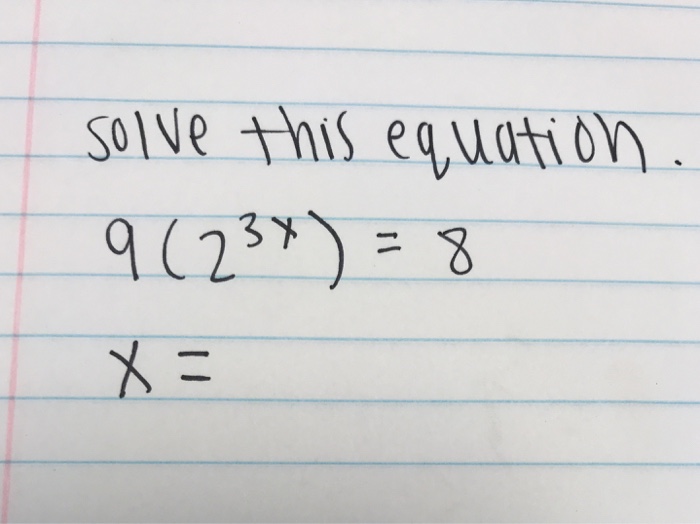 solve this equation.
9(2^3x) = 8
x =